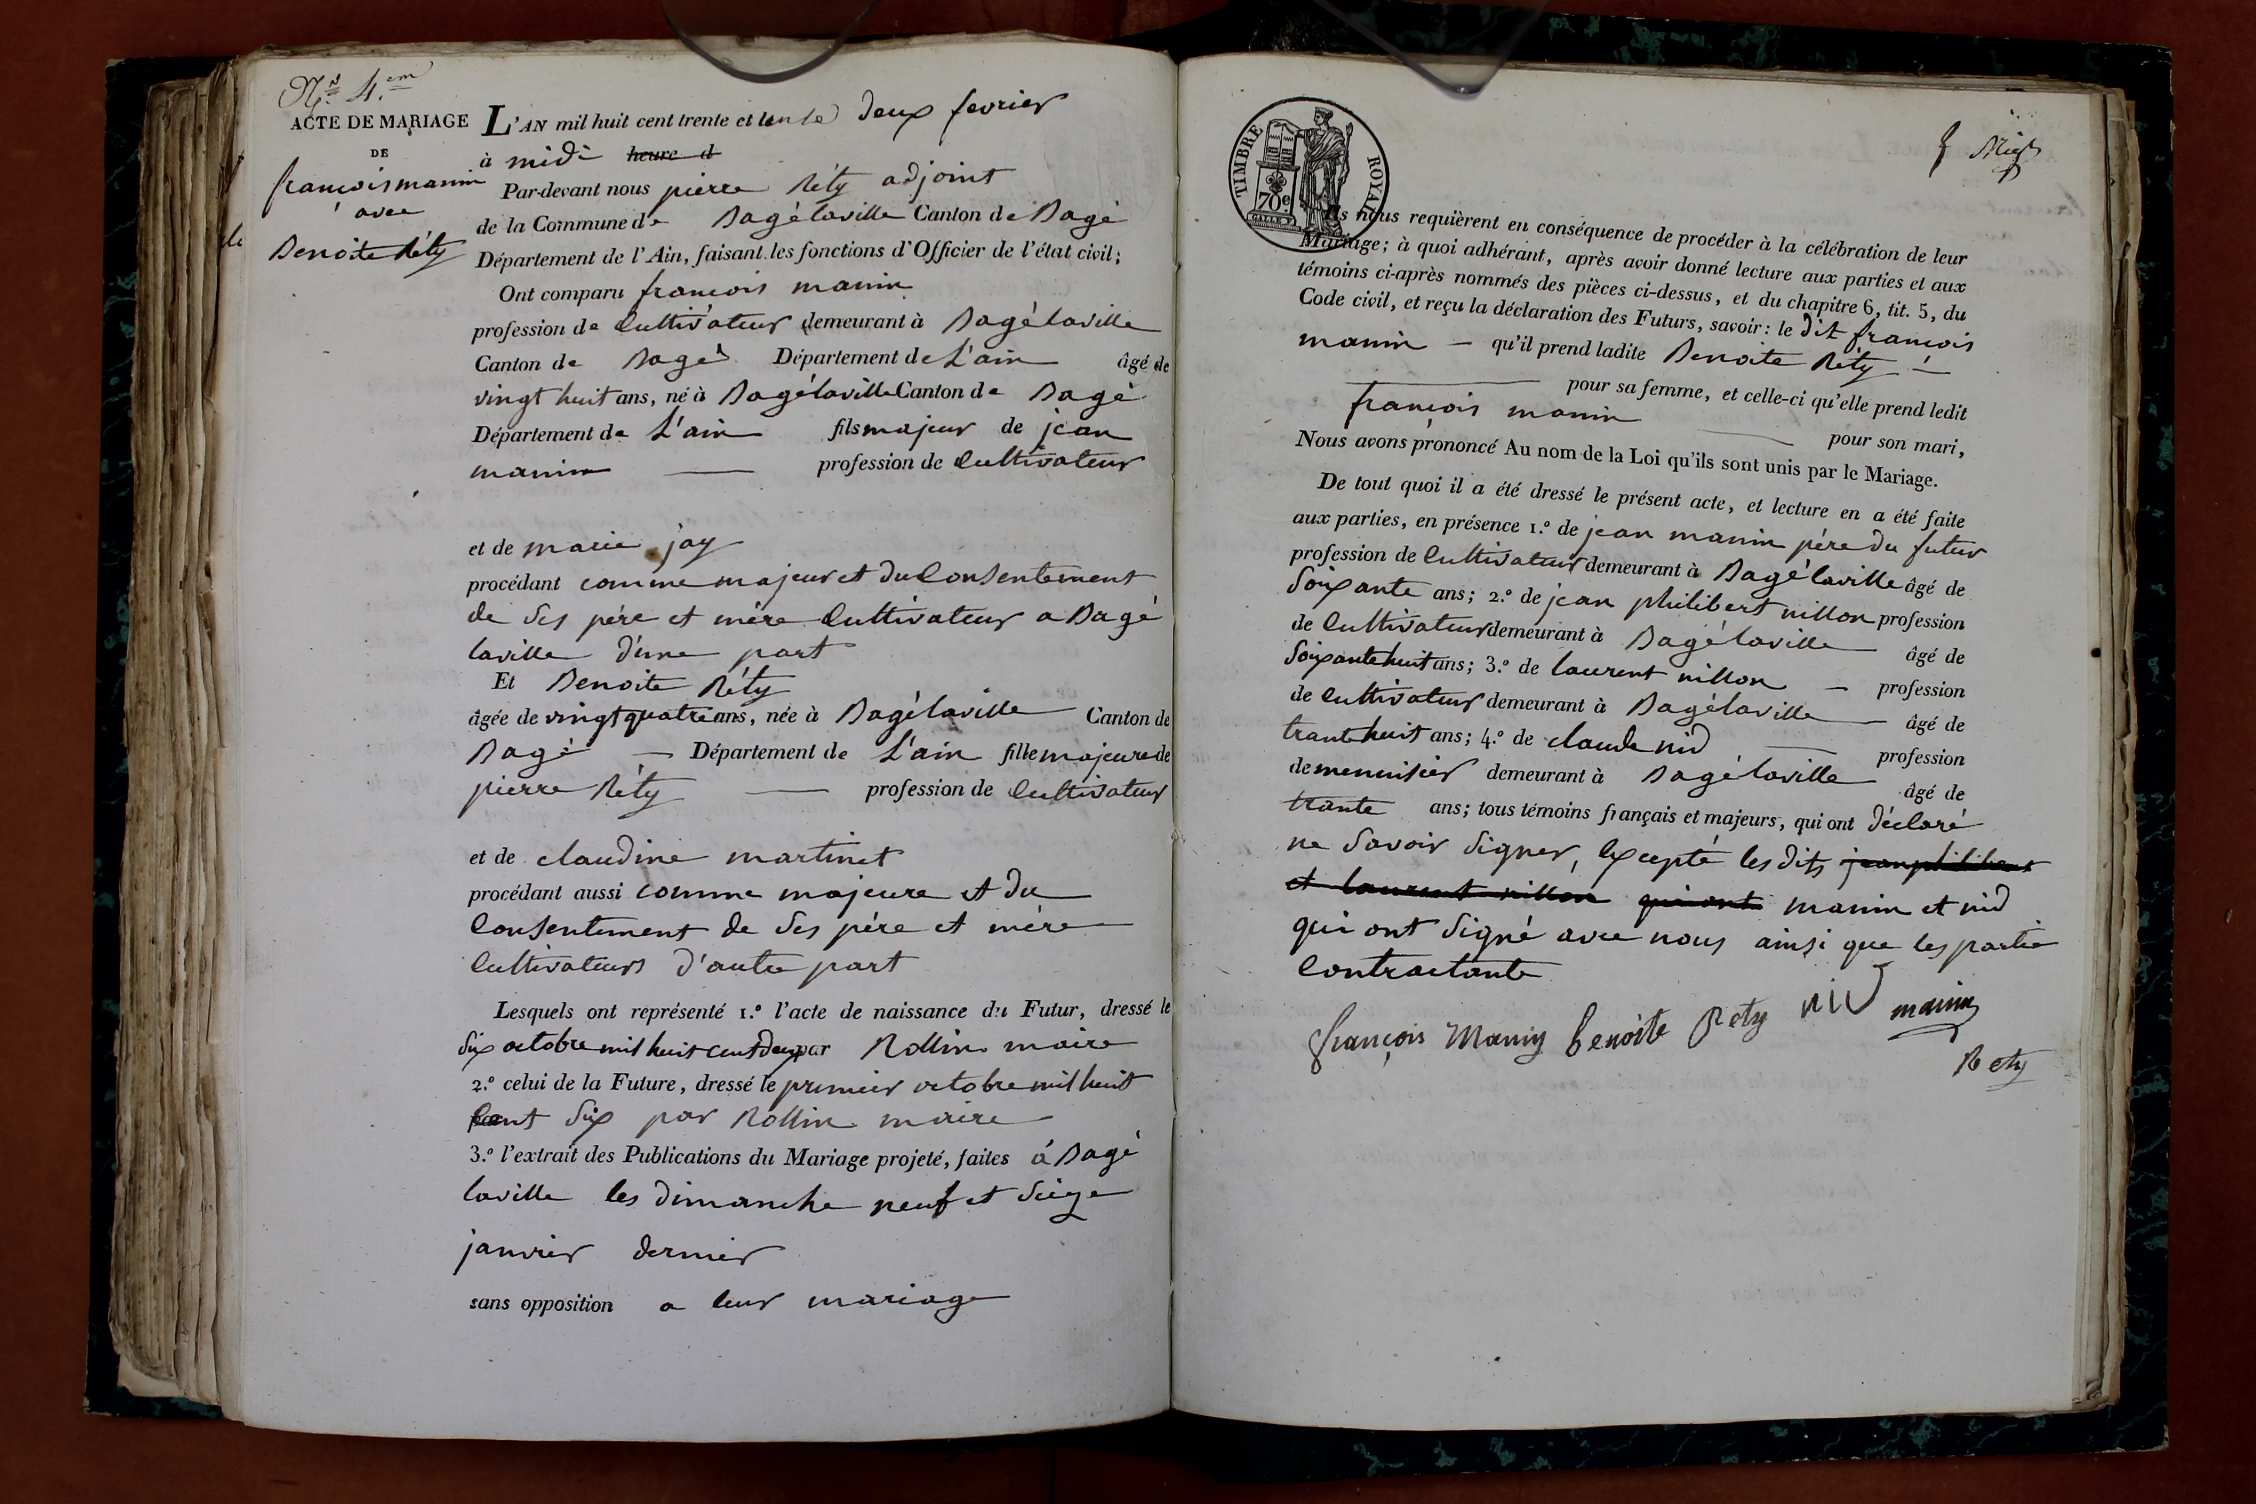 N.º 4.em
ACTE DE MARIAGE
DE
francois manin
avec
Benoite Réty
L'AN mil huit cent trente et un le deux fevrier
à midi heure d
Par-devant nous pierre Réty adjoint
de la Commune de Bagélaville Canton de Bagé
Département de l'Ain, faisant les fonctions d'Officier de l'état civil;
Ont comparu francois manin
profession de Cultivateur demeurant à Bagélaville
Canton de Bagé Département de L'ain âgé de
vingt huit ans, né à Bagélaville Canton de Bagé
Département de L'ain fils majeur de jean
manin profession de Cultivateur
et de marie jay
procédant comme majeur et du Consentement
de ses pére et mére Cultivateur a Bagé
laville d'une part
Et Benoite Réty
âgée de vingt quatre ans, née à Bagélaville Canton de
Bagé Département de L'ain fille majeure de
pierre Réty profession de Cultivateur
et de claudine martinet
procédant aussi comme majeure et du
Consentement de ses pére et mére
Cultivateurs d'autre part
Lesquels ont représenté 1.º l'acte de naissance du Futur, dressé le
six octobre mil huit cent deux par Rollin maire
2.º celui de la Future, dressé le premier octobre mil huit
Cent six par Rollin maire
3.º l'extrait des Publications du Mariage projeté, faites á Bagé
laville les dimanche neuf et seize
janvier dernier
sans opposition a leur mariage
TIMBRE ROYAL
70c
Ils nous requièrent en conséquence de procéder à la célébration de leur
Mariage; à quoi adhérant, après avoir donné lecture aux parties et aux
témoins ci-après nommés des pièces ci-dessus, et du chapitre 6, tit. 5, du
Code civil, et reçu la déclaration des Futurs, savoir: le dit francois
manin qu'il prend ladite Benoite Réty
pour sa femme, et celle-ci qu'elle prend ledit
francois manin pour son mari,
Nous avons prononcé Au nom de la Loi qu'ils sont unis par le Mariage.
De tout quoi il a été dressé le présent acte, et lecture en a été faite
aux parties, en présence 1.º de jean manin pére du futur
profession de Cultivateur demeurant à Bagélaville âgé de
soixante ans; 2.º de jean philibert nillon profession
de Cultivateur demeurant à Bagélaville âgé de
soixante huit ans; 3.º de laurent nillon profession
de Cultivateur demeurant à Bagélaville âgé de
trante huit ans; 4.º de claude nid profession
de menuisier demeurant à Bagélaville âgé de
trante ans; tous témoins français et majeurs, qui ont déclaré
ne savoir signer, Excepté les dits jean philibert
et laurent nillon qui ont manin et nid
qui ont signé avec nous ainsi que les partie
Contractante
françois Manin benoite Rety nid manin
Rety